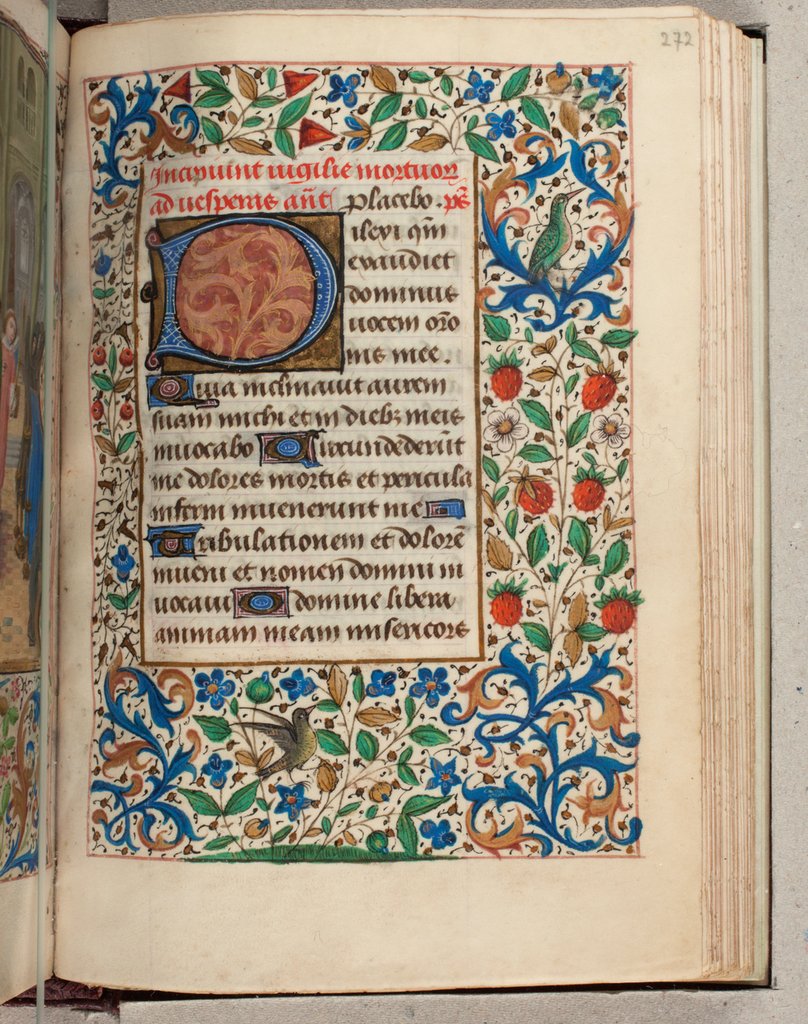 272
Incipiunt vigilie mortuor
ad vesperas añt Placebo. ps̃
Dilexi qm̃
exaudiet
dominus
vocem or̃o
nis mee.
Quia inclinavit aurem
suam michi et in dieb; meis
invocabo Circundederũt
me dolores mortis et pericula
inferni invenerunt me
Tribulationem et dolorẽ
inveni et nomen domini in
vocavi O domine libera
animam meam misericors